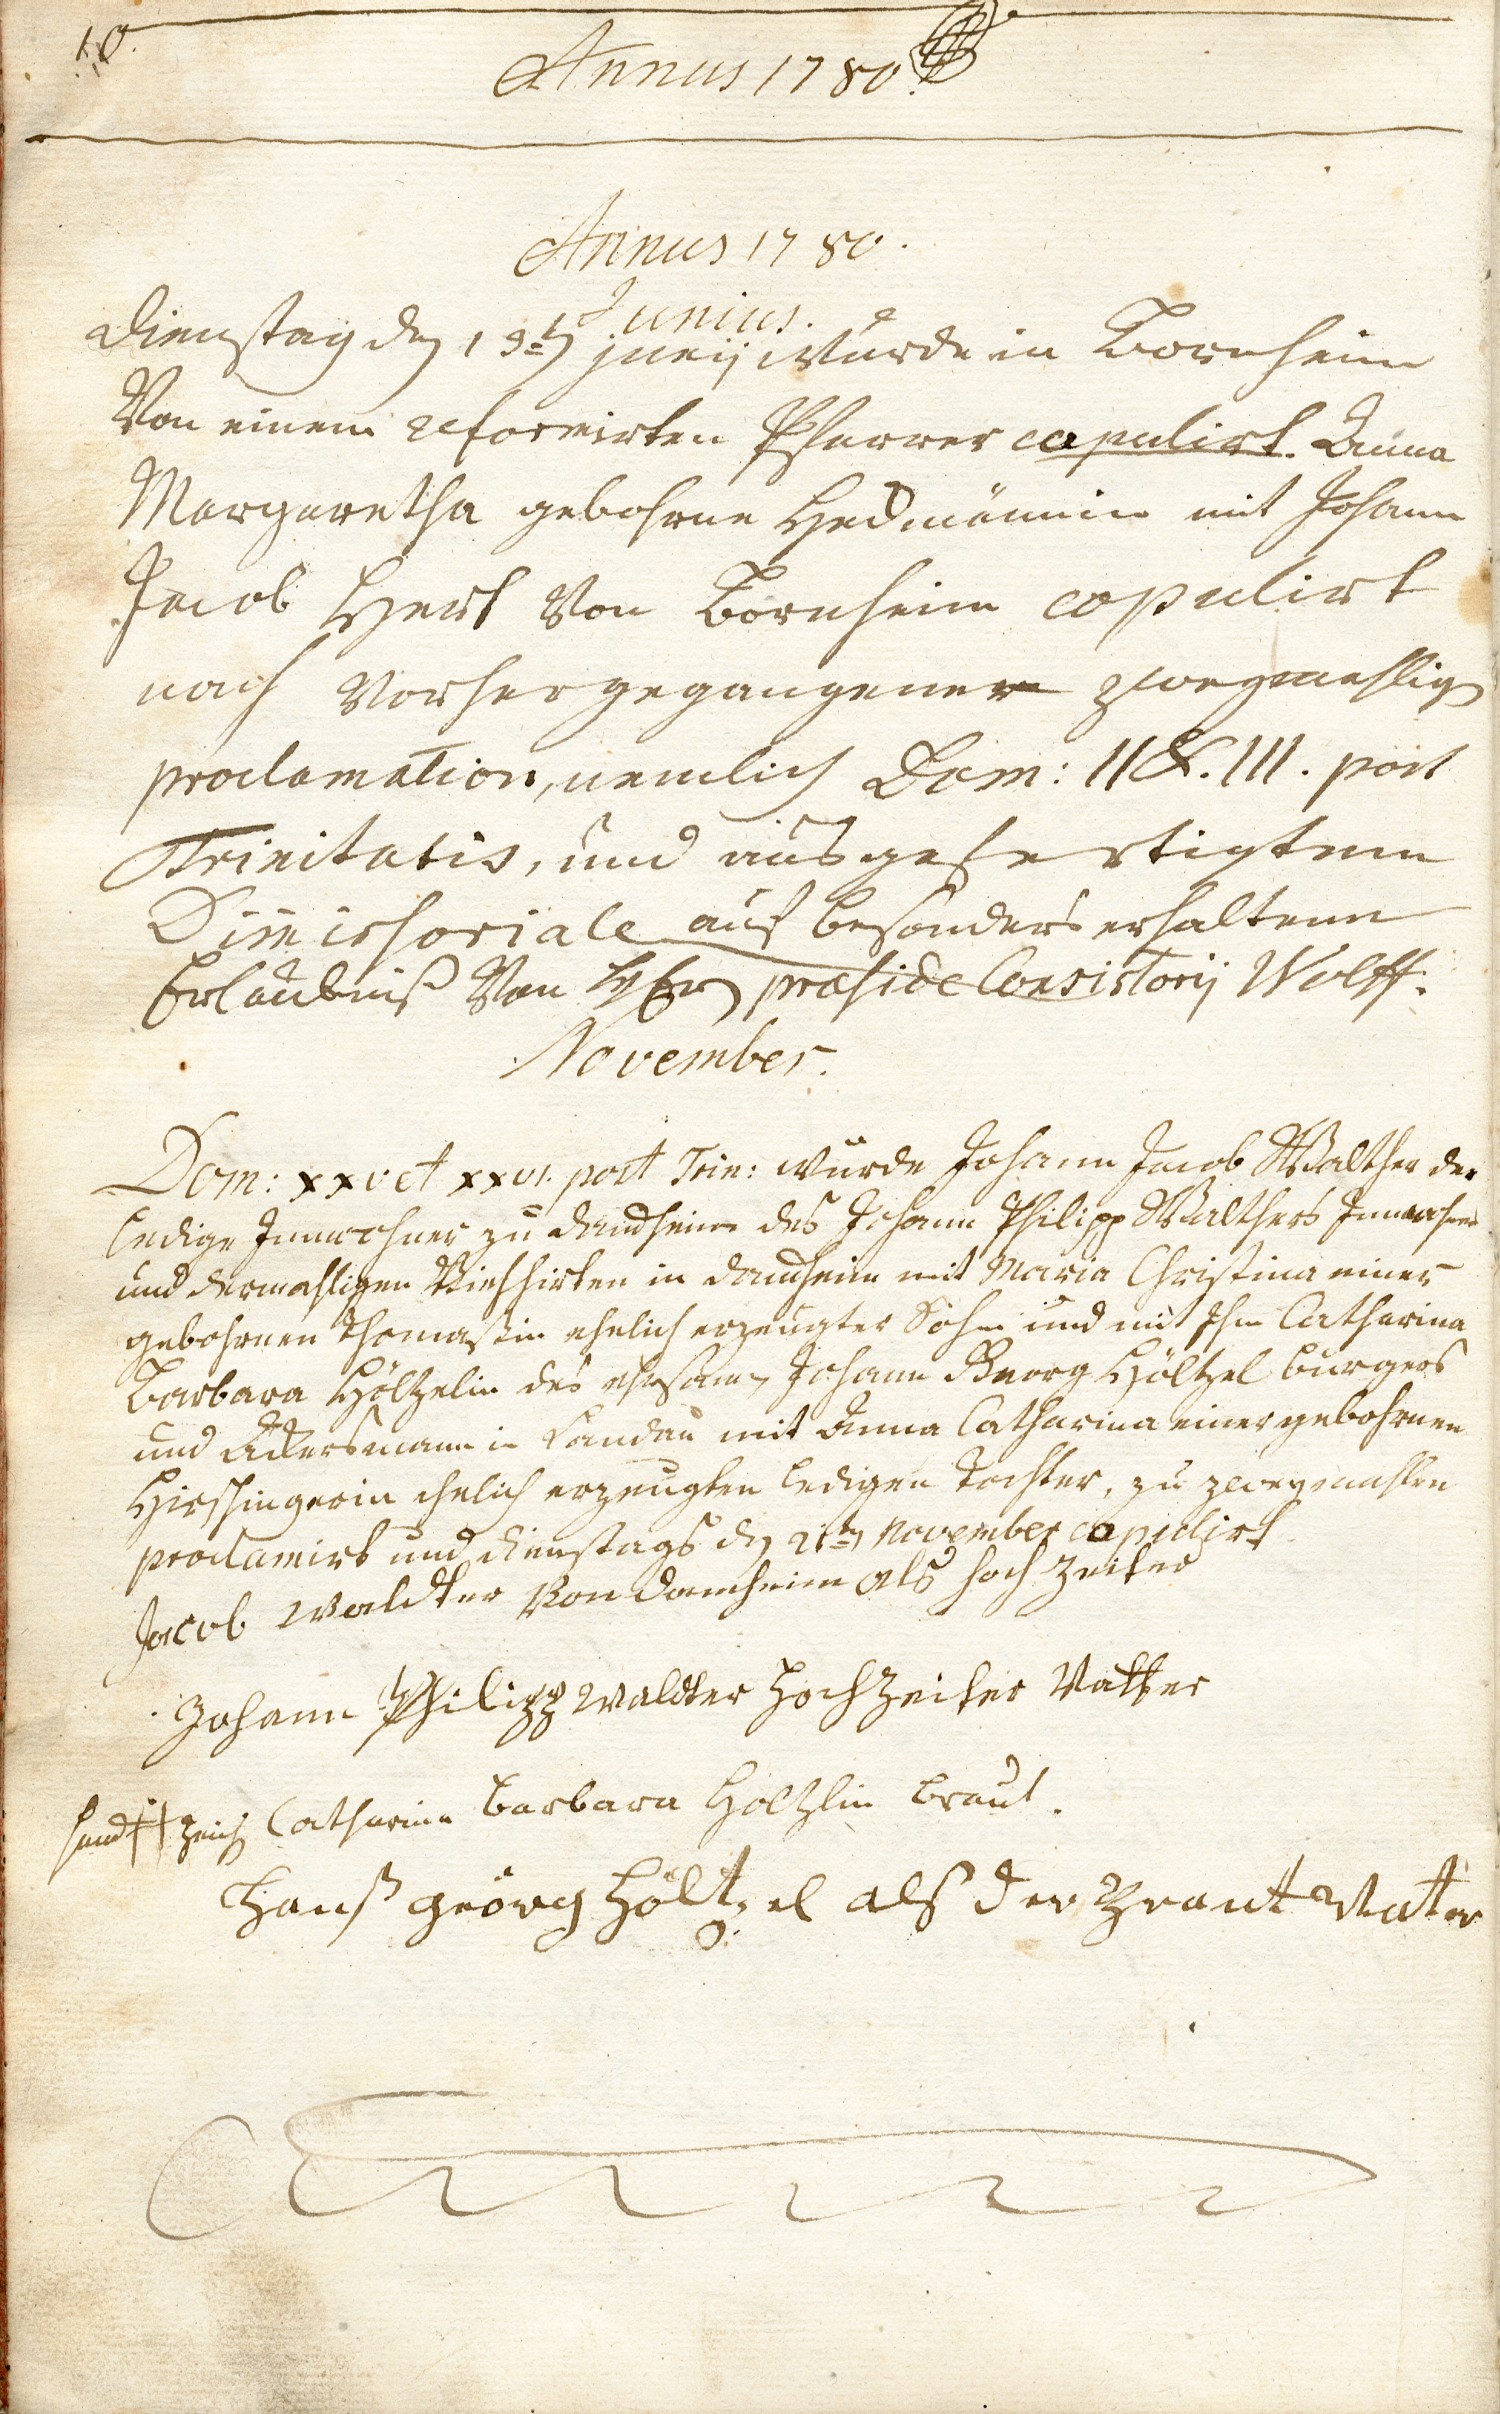 10.
Annus 1780.
Annus 1780.
Junius.
Dienstag den 13ten junij wurde in Bornheim
Von einem reformirten Pfarrer copulirt. Anna
Margaretha gebohrne Hedmännin mit Johann
Jacob Hert Von Bornheim copulirt
nach vorhergegangener zweymahlig
proclamation, nemlich Dom: II &. III. post
Trinitatis, und ausgefertigtem
Dimissoriale auf besonders erhaltene
Erlaubniß Von præside Consistorij Wolff.
November.
Dom: XXV et XXVI. post Trin: wurde Johann Jacob Walther der
ledige Innwohner zu Damheim des Johann Philipp Walthers Innwohners
und dermahligen Viehhirten in Damheim mit Maria Christina einer
gebohrnen Thomaßin ehelich erzeugter Sohn und mit Ihm Catharina
Barbara Höltzelin des ehrsamen Johann Georg Höltzel burgers
und Ackersmann in Landau mit Anna Catharina einer gebohrnen
Hirschingerin ehelich erzeugten ledigen Tochter, zu zweymahlen
proclamirt und Dienstags den 21ten November copulirt
Jacob Waldter Von Damheim als hoch Zeiter
Johann Philipp Waldter Hoch Zeiter Vatter
hand ++ zeich Catharina Barbara Höltzlin braut.
Hanß Geörg Höltzel als der Braut Vater